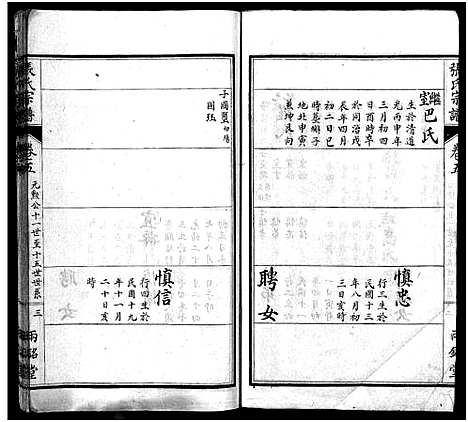 張氏宗譜
卷五
兩銘堂
繼室
巴氏
生於清道
光丙申年
三月初四
日酉時卒
於同治戊
辰年四月
初二日巳
時葬獅子
地北甲寅
兼艮坤向
慎忠
行三生於
民國十三
年八月初
三日亥時
聘女
子國璽
國珏
慎信
行四生於
民國十九
年十一月
二十日亥
時
張氏宗譜
卷五
元勲公十一世至十五世世系
三
兩銘堂